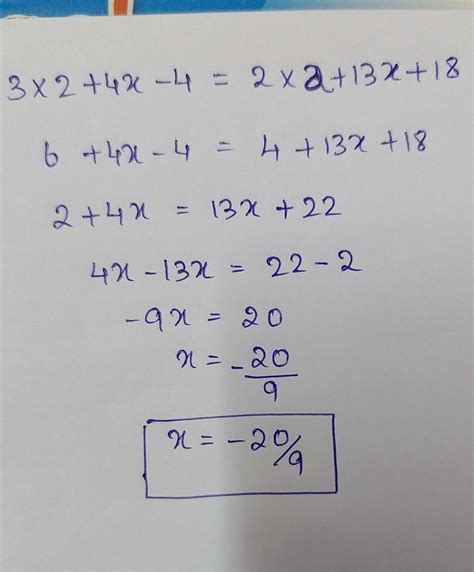 3×2+4x-4 = 2×2+13x+18
6+4x-4 = 4+13x+18
2+4x = 13x+22
4x-13x = 22-2
-9x = 20
x = -20/9
x = -20/9